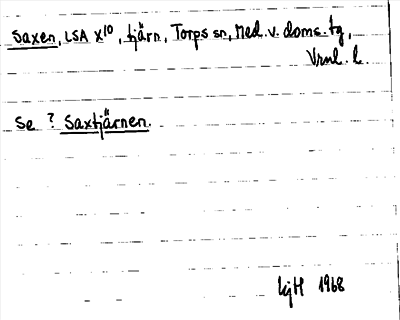 Saxen, LSA X10, tjärn, Torps sn, Med. v. doms. tg,
Vrml. l.
Se ? Saxtjärnen.
1968